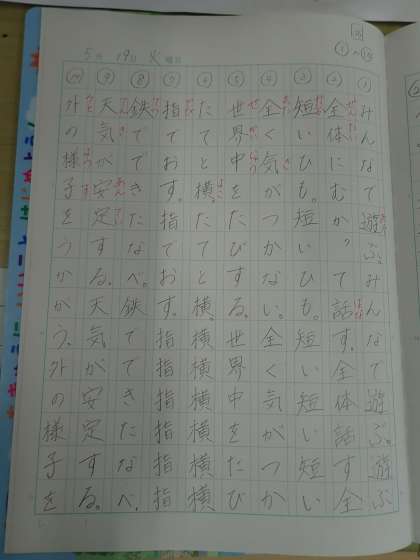 5月19日火曜日
みんなで遊ぶ。みんなで遊ぶ。遊ぶ
全体にむかって話す。全体話す全
短いひも。短いひも。短い短い短い
全く気がつかない。全く気がつか
世界中をたびする。世界中をたび
たてと横。たてと横。横横横横横
指でおす。指でおす。指指指指指
鉄でできたなべ。鉄できたなべ、
天気が安定する。天気が安定する。
外の様子をうかがう。外の様子を